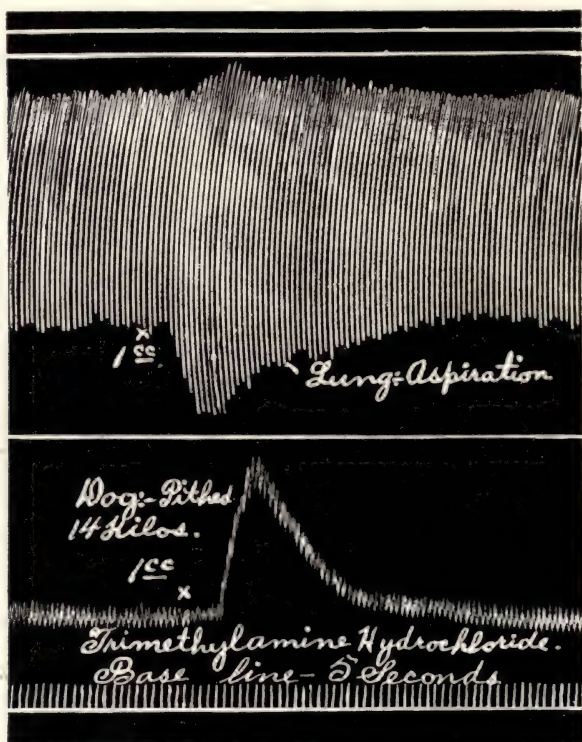 x
1 cc.
Lung:-Aspiration
Dog:-Pithed
14 Kilos.
1 cc
x
Trimethylamine Hydrochloride.
Base line - 5 Seconds